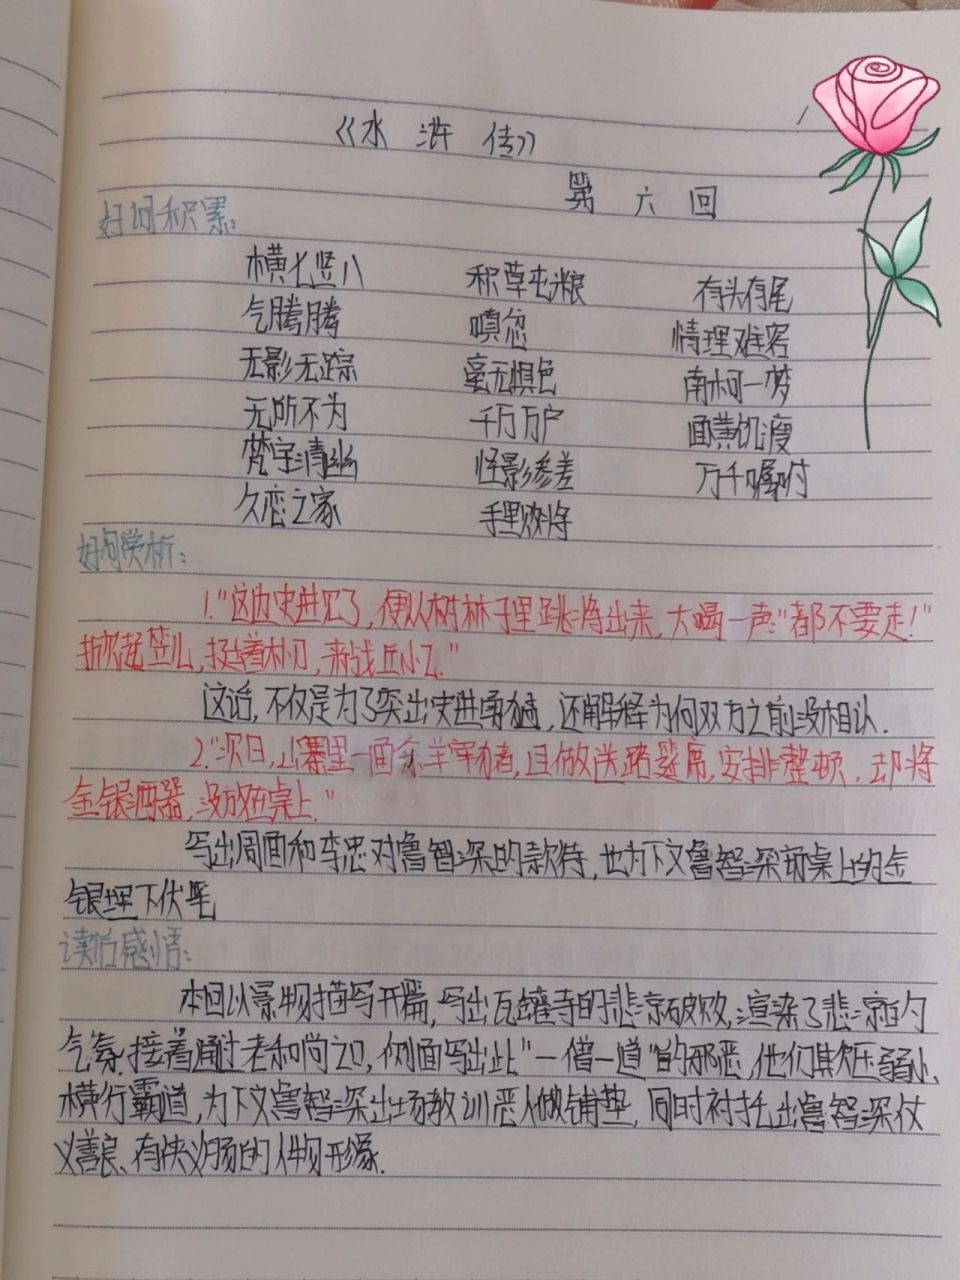 《水浒传》
第六回
好词积累:
横七竖八 积草屯粮 有头有尾
气腾腾 嗔忿 情理难容
无影无踪 毫无惧色 南柯一梦
无所不为 千万万户 面黄饥瘦
梵宇清幽 怪影参差 万千嘱咐
久恋之家 手里败将
好句赏析:
1."这边史进见了,便从树林子里跳将出来,大喝一声:"都不要走!"
掀起笠儿,挺着朴刀,来战丘小乙."
这话,不仅是为了突出史进勇猛,还解释为何双方之前没相认.
2."次日,山寨里一面杀羊宰猪,且做送路筵席,安排整顿,却将
金银酒器,设放在桌上."
写出周通和李忠对鲁智深的款待,也为下文鲁智深砸桌上的金
银埋下伏笔
读后感悟:
本回以景物描写开篇,写出瓦罐寺的悲凉破败,渲染了悲凉的
气氛.接着通过老和尚之口,侧面写出此"一僧一道"的邪恶,他们欺压弱小、
横行霸道,为下文鲁智深出场教训恶人做铺垫,同时衬托出鲁智深仗
义善良、有侠义肠的人物形象.